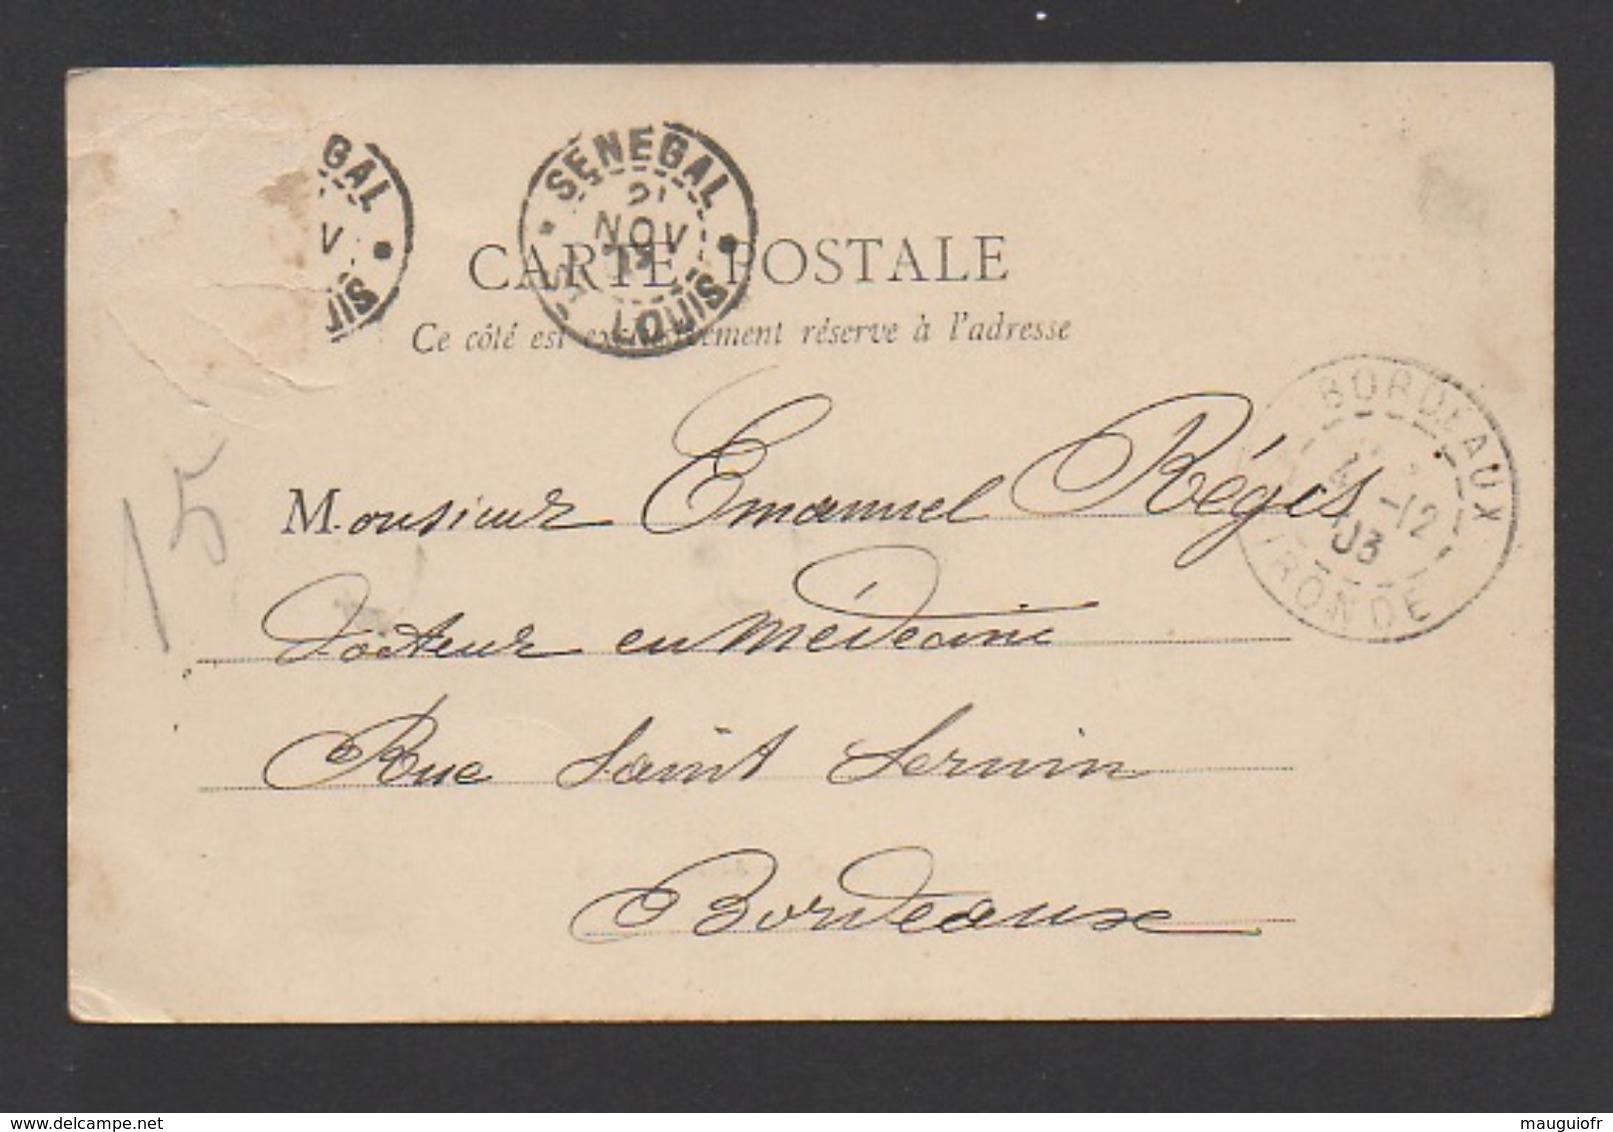 GAL
V
UIS
SENEGAL
21
NOV
LOUIS
CARTE POSTALE
Ce côté est exclusivement réservé à l'adresse
BORDEAUX
4 -12
03
GIRONDE
15
Monsieur Emanuel Régis
Docteur en Médecine
Rue Saint Sernin
Bordeaux
delcampe.net
mauguiofr